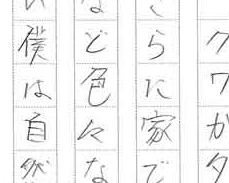 クワガタ
らに家で
など色々な
い僕は自然